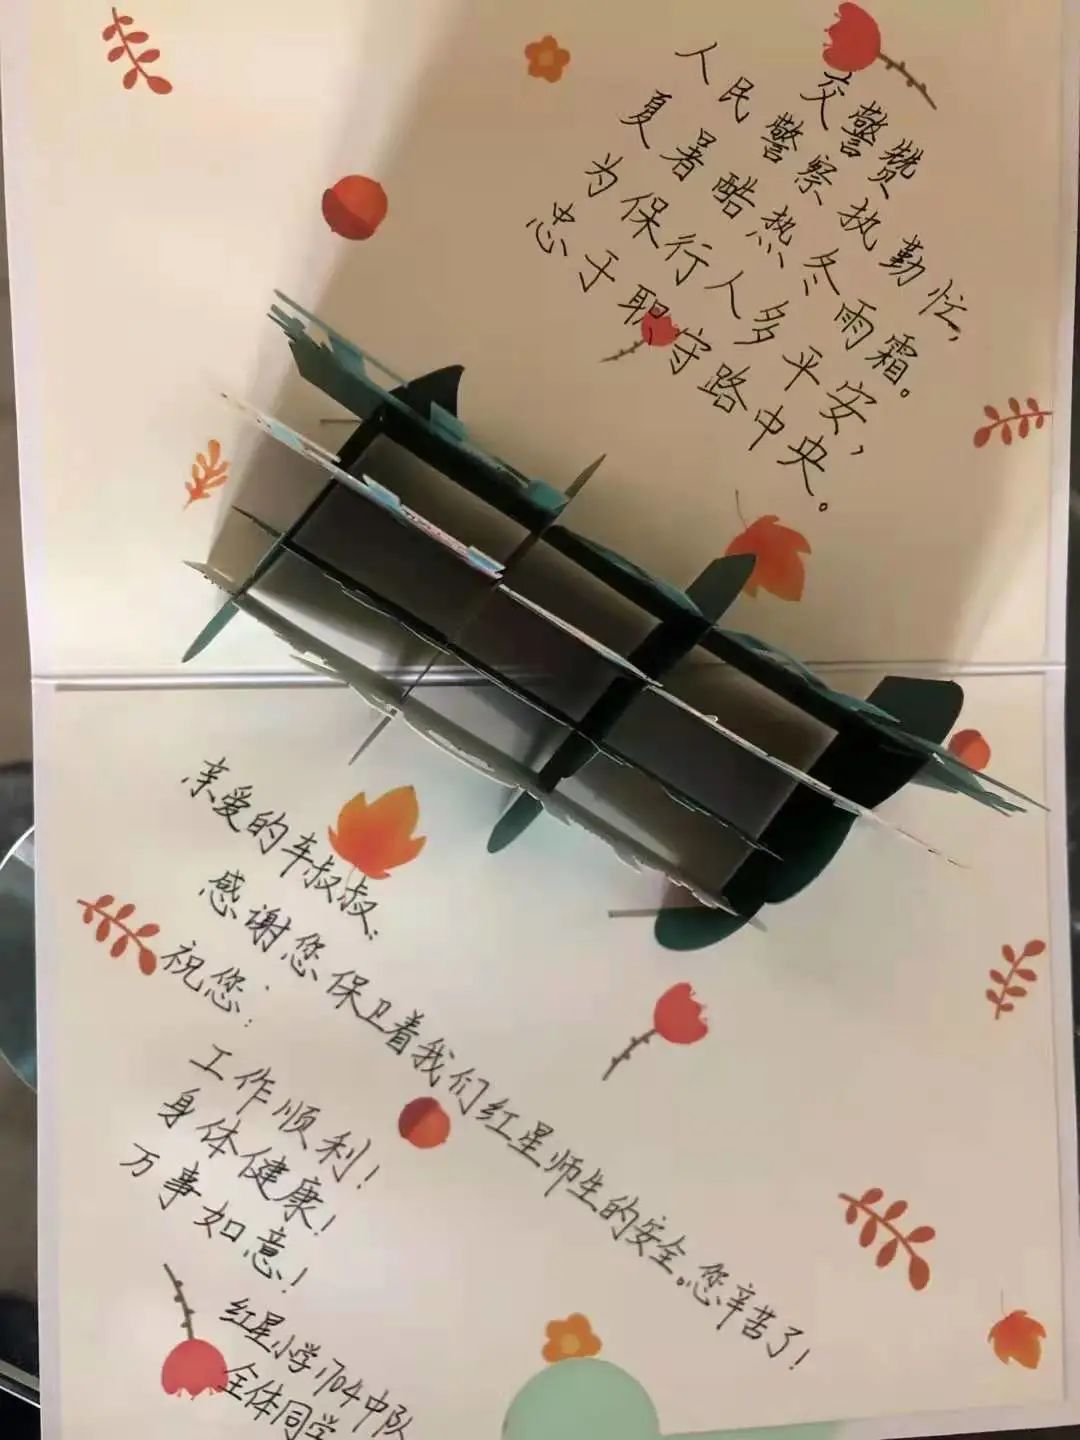 交警赞
人民警察执勤忙，
夏暑酷热冬雨霜。
为保行人多平安，
忠于职守路中央。
亲爱的车叔叔：
感谢您保卫着我们红星师生的安全。您辛苦了！
祝您：
工作顺利！
身体健康！
万事如意！
红星小学1704中队
全体同学